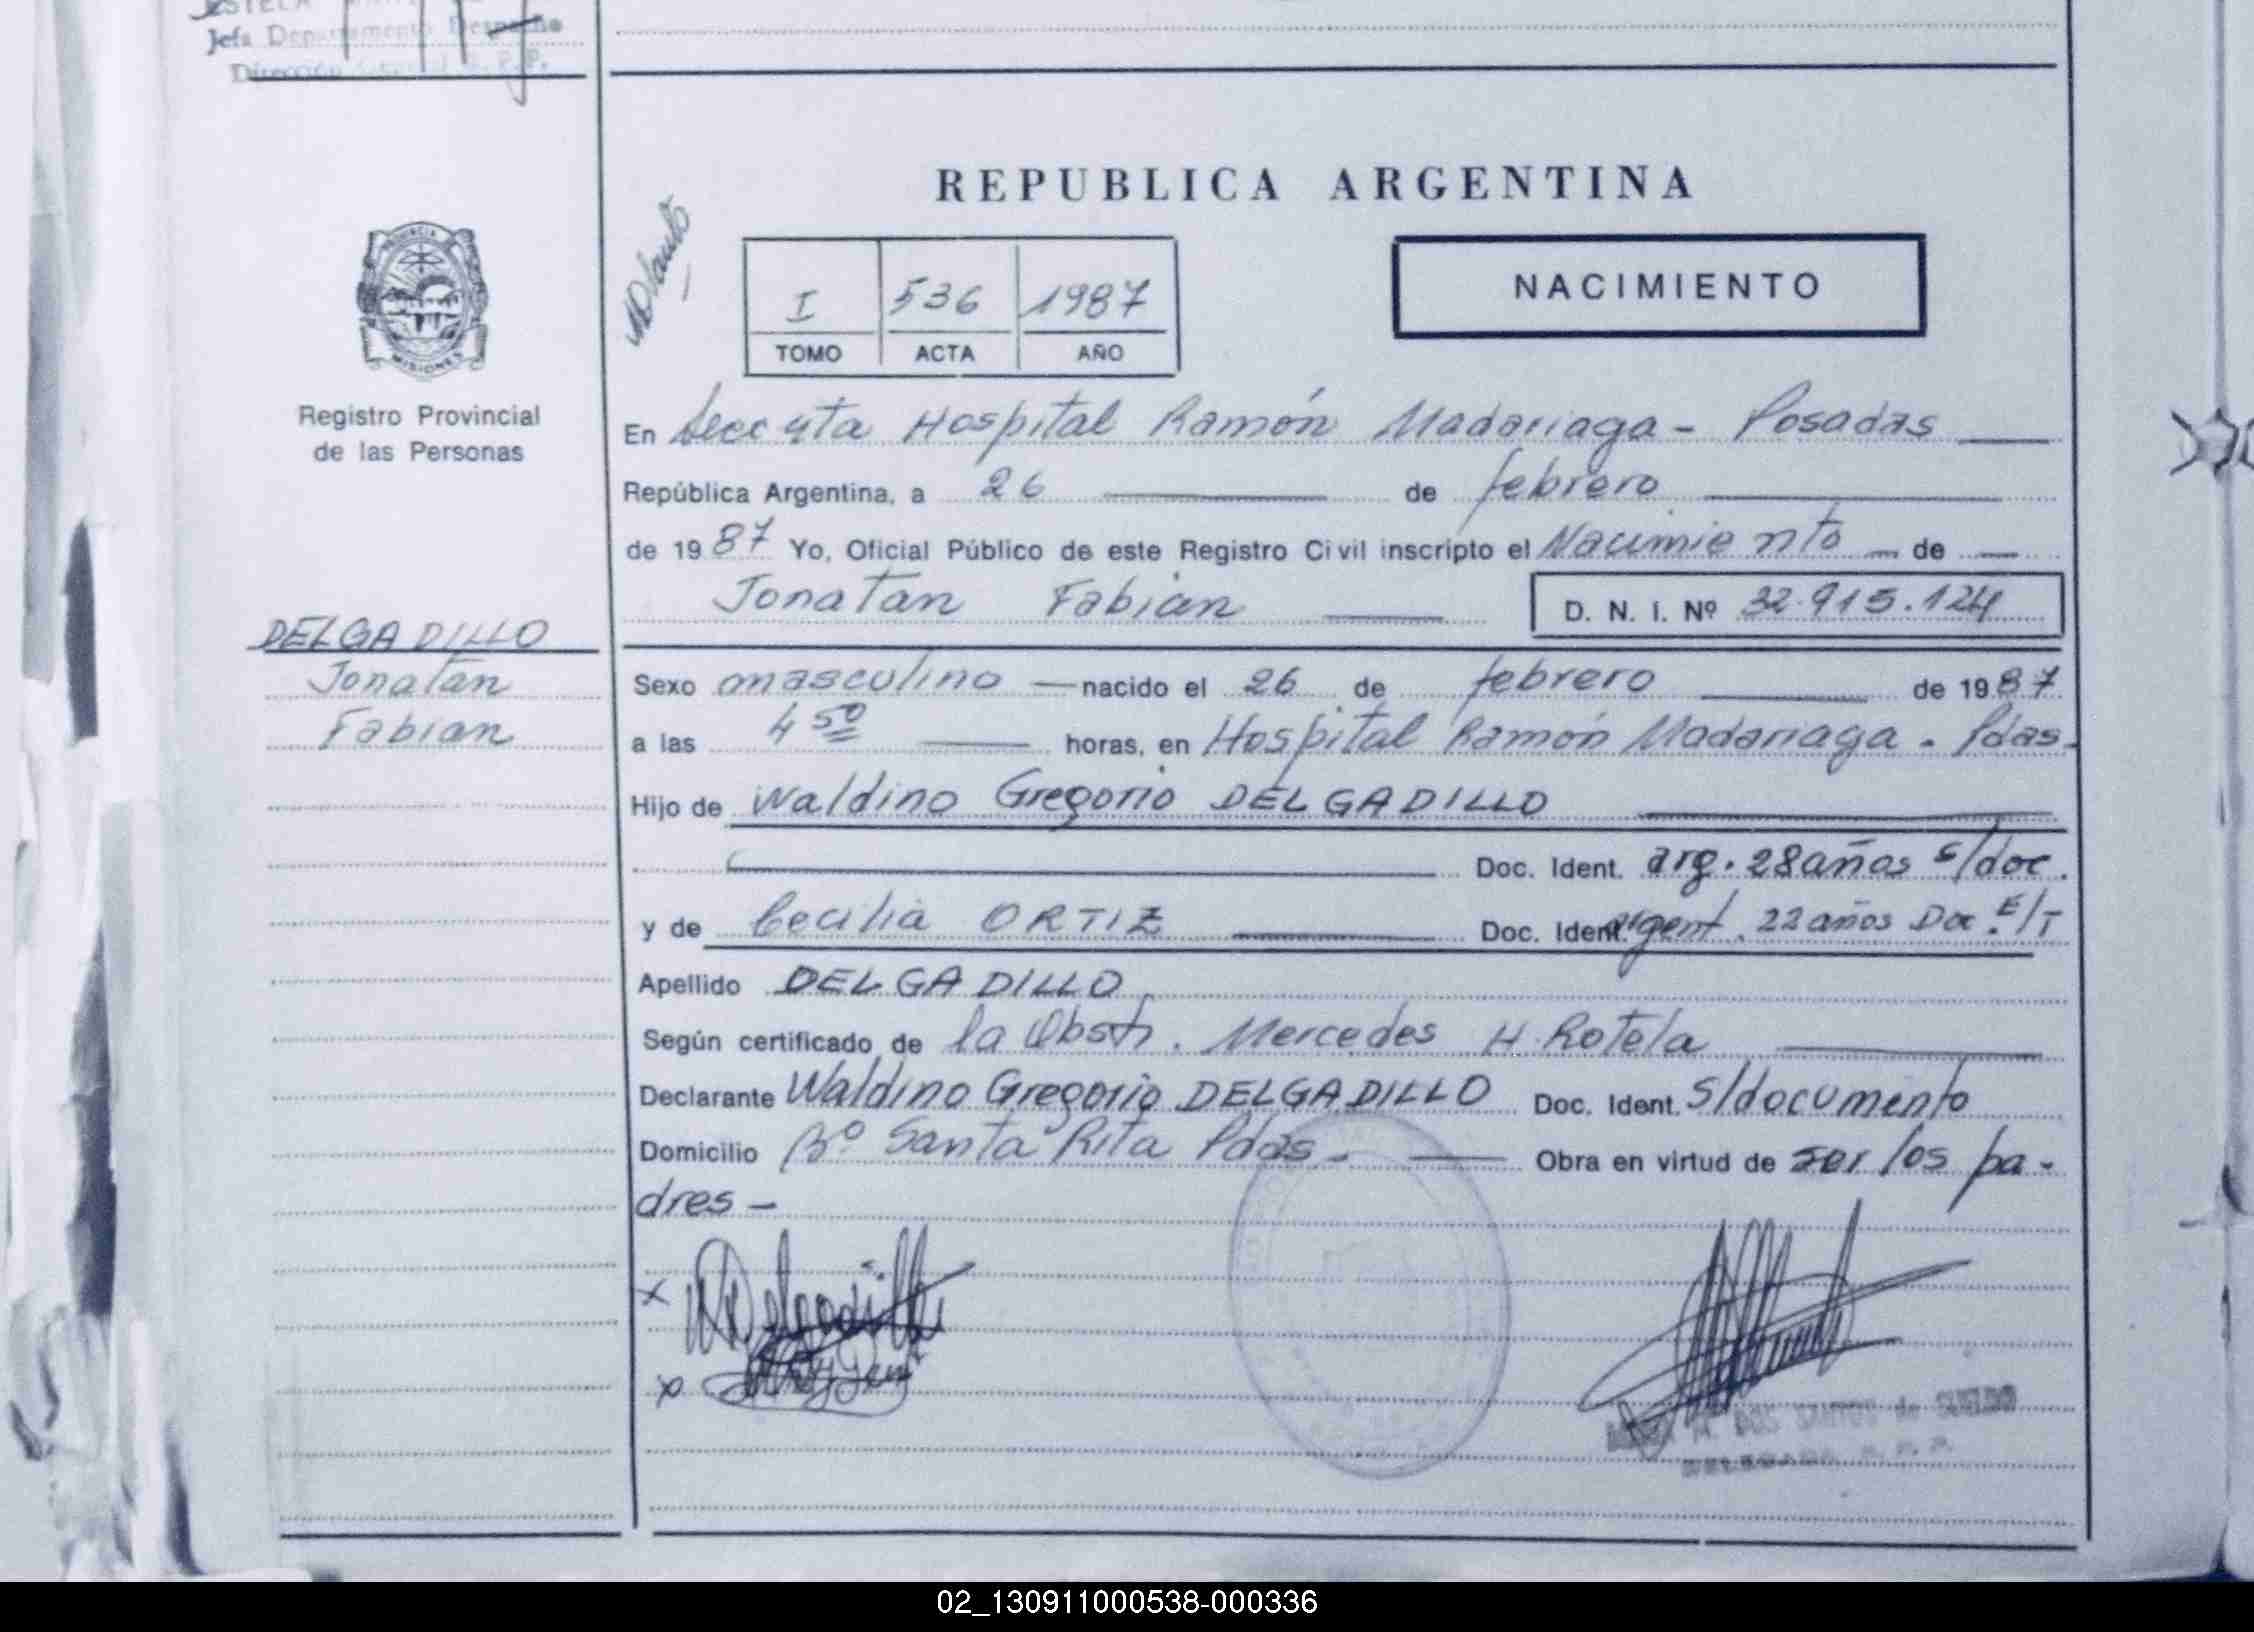 Jefa Departamento Despacho
Dirección General R. P. P.
REPUBLICA ARGENTINA
PROVINCIA
MISIONES
Registro Provincial
de las Personas
I 536 1987
TOMO ACTA AÑO
NACIMIENTO
En Secc 4ta Hospital Ramón Madariaga - Posadas
República Argentina, a 26 de febrero
de 1987 Yo, Oficial Público de este Registro Civil inscripto el Nacimiento de
Jonatan Fabián D. N. I. Nº 32.915.124
DELGADILLO
Jonatan
Fabian
Sexo masculino nacido el 26 de febrero de 1987
a las 4 50 horas, en Hospital Ramón Madariaga - Pdas.
Hijo de Waldino Gregorio DELGADILLO
Doc. Ident. arg. 28 años s/doc.
y de Cecilia ORTIZ Doc. Ident. argent. 22 años Doc. E/T
Apellido DELGADILLO
Según certificado de la Obst. Mercedes H Rotela
Declarante Waldino Gregorio DELGADILLO Doc. Ident. s/documento
Domicilio Bº Santa Rita Pdas. Obra en virtud de ser los pa-
dres -
x Delgadillo
x
Mª DOS SANTOS de SUELDO
DELEGADA R. P. P.
02_130911000538-000336